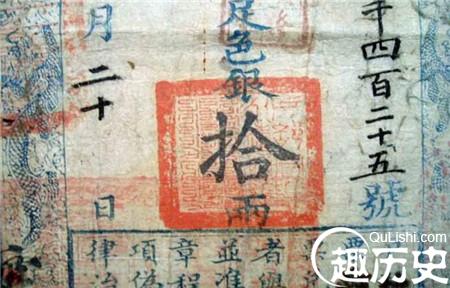 四百二十五號
足色銀拾兩
月二十日
者與
並准
章程
項偽
律治
QuLishi.com
趣历史